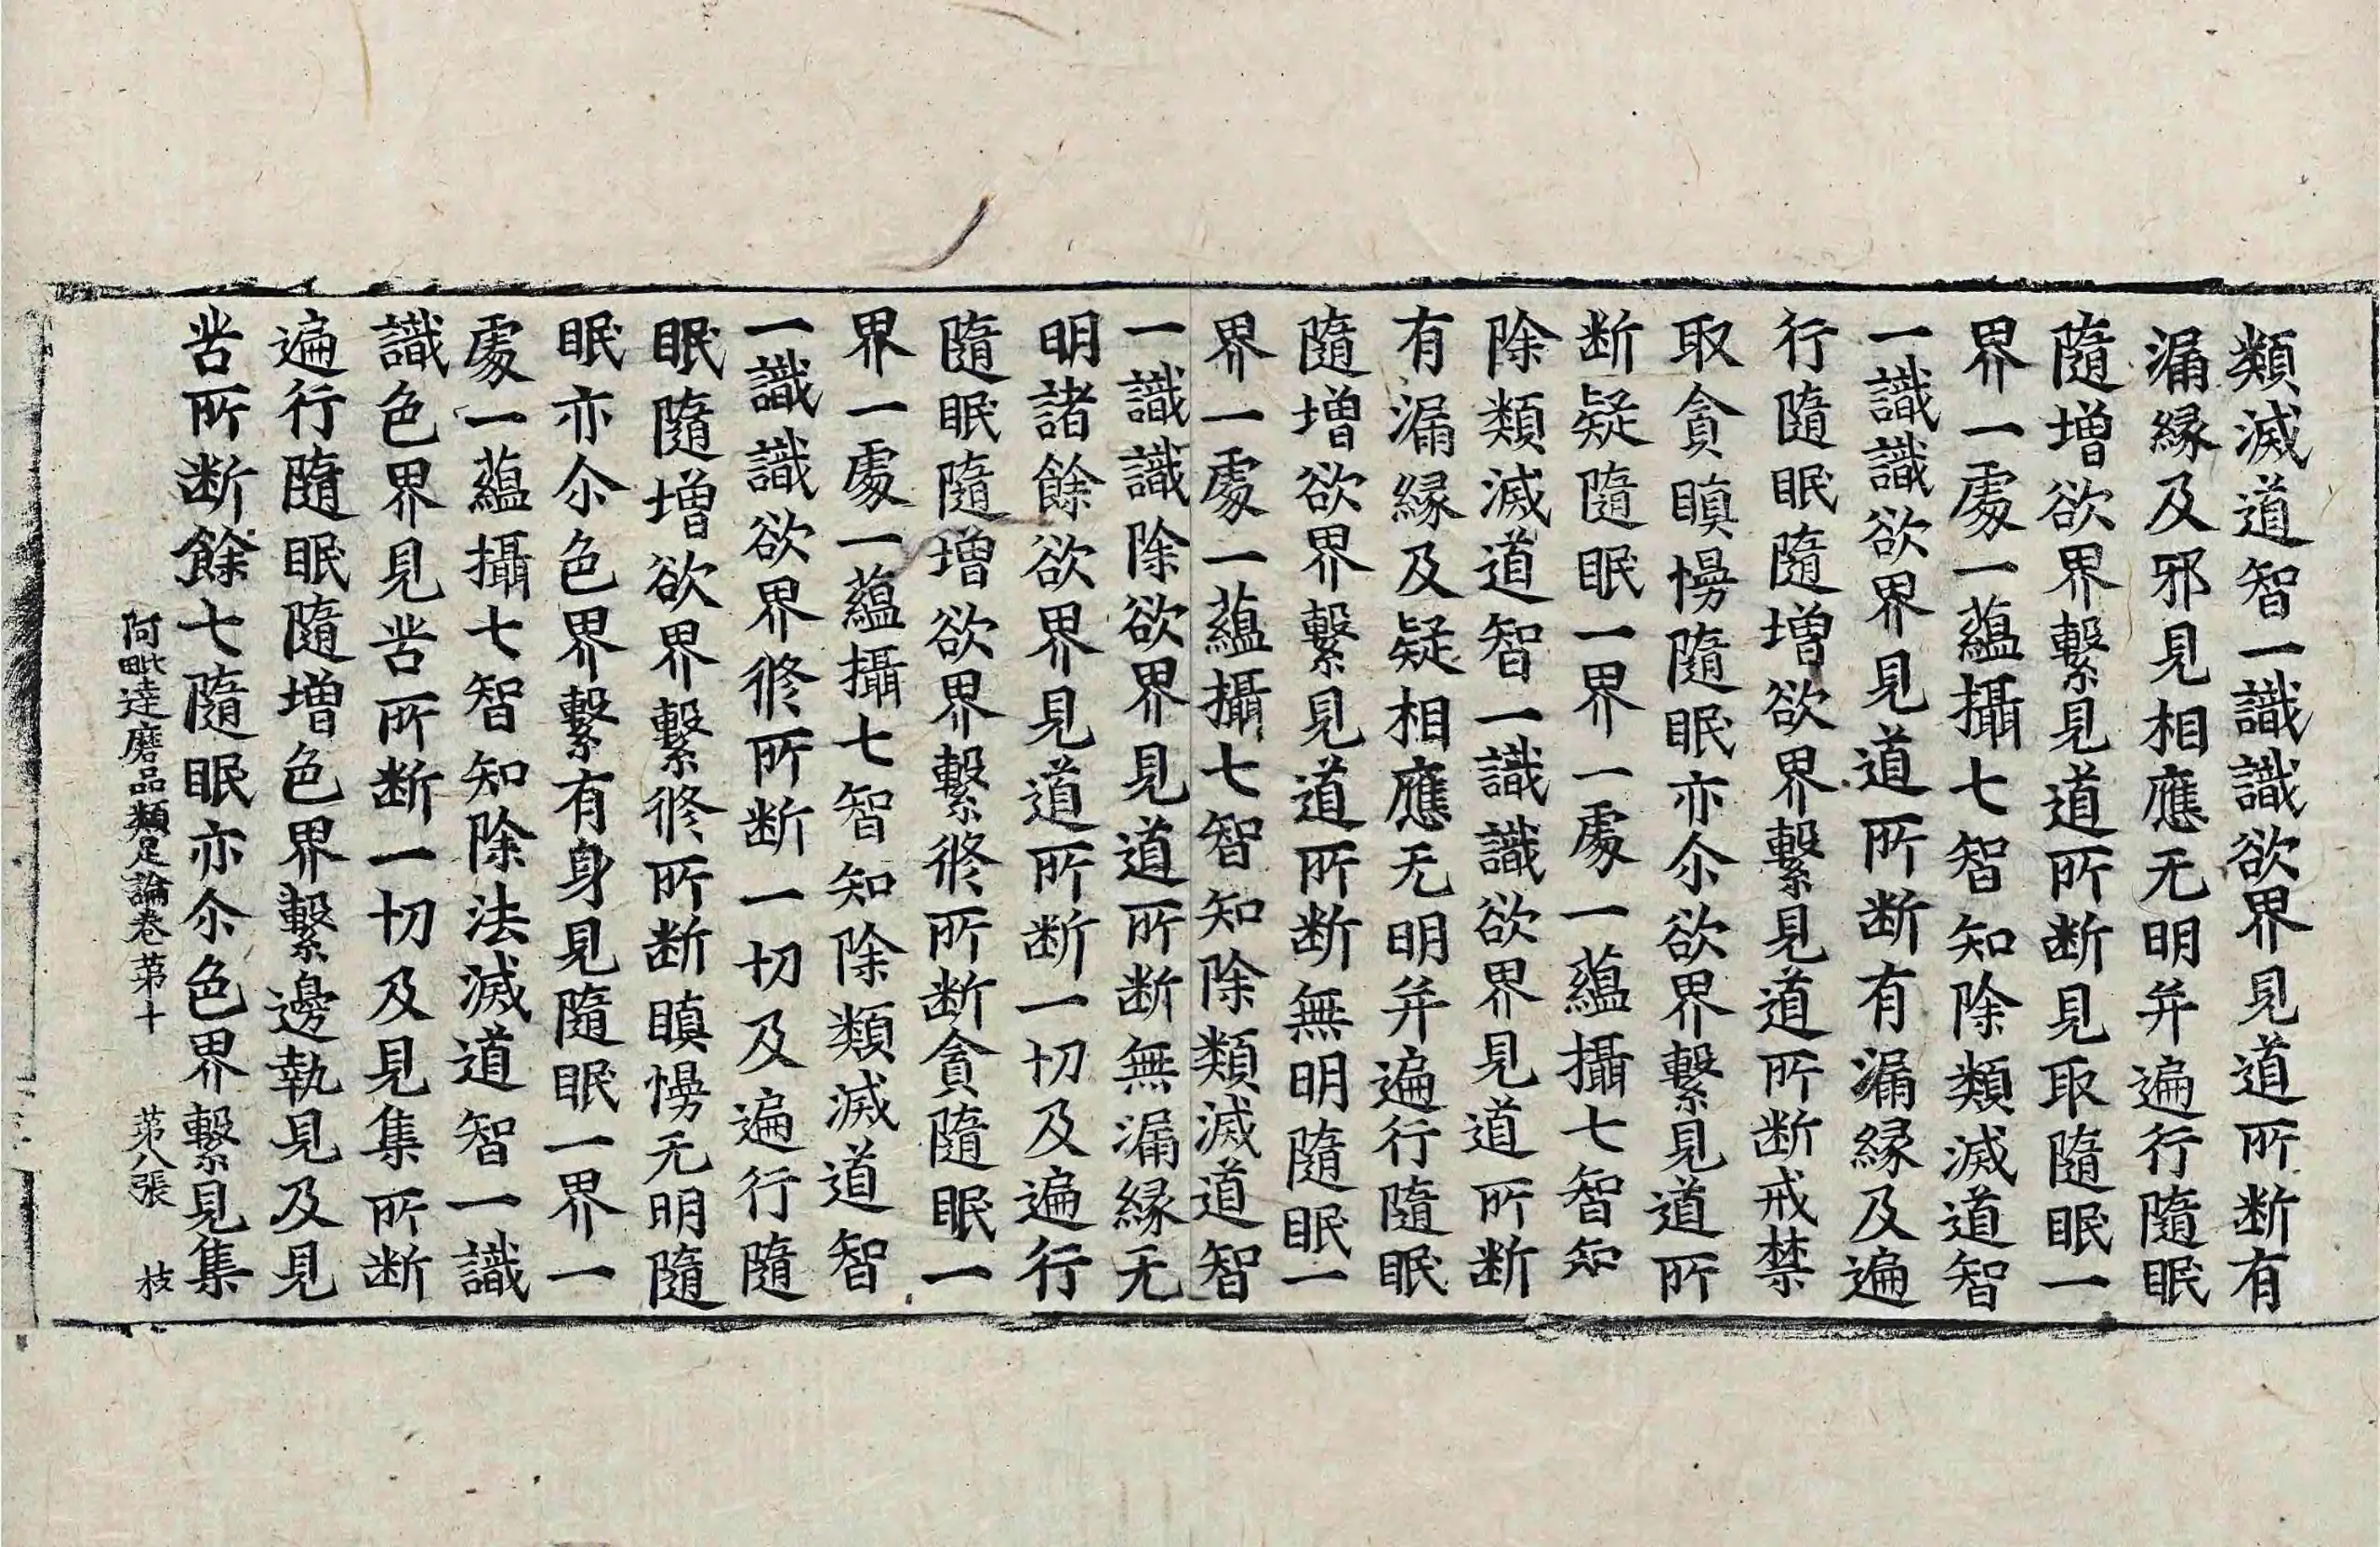 類滅道智一識識欲界見道所断有
漏縁及邪見相應无明并遍行隨眠
隨增欲界繫見道所断見取隨眠一
界一處一蘊攝七智知除類滅道智
一識識欲界見道所断有漏縁及遍
行隨眠隨增欲界繫見道所断戒禁
取貪瞋慢隨眠亦尒欲界繫見道所
断疑隨眠一界一處一蘊攝七智知
除類滅道智一識識欲界見道所断
有漏縁及疑相應无明并遍行隨眠
隨增欲界繫見道所断無明隨眠一
界一處一蘊攝七智知除類滅道智
一識識除欲界見道所断無漏縁无
明諸餘欲界見道所断一切及遍行
隨眠隨增欲界繫修所断貪隨眠一
界一處一蘊攝七智知除類滅道智
一識識欲界修所断一切及遍行隨
眠隨增欲界繫修所断瞋慢无明隨
眠亦尒色界繫有身見隨眠一界一
處一蘊攝七智知除法滅道智一識
識色界見苦所断一切及見集所断
遍行隨眠隨增色界繫邊執見及見
苦所断餘七隨眠亦尒色界繫見集
阿毗達磨品類足論卷苐十 苐八張 枝